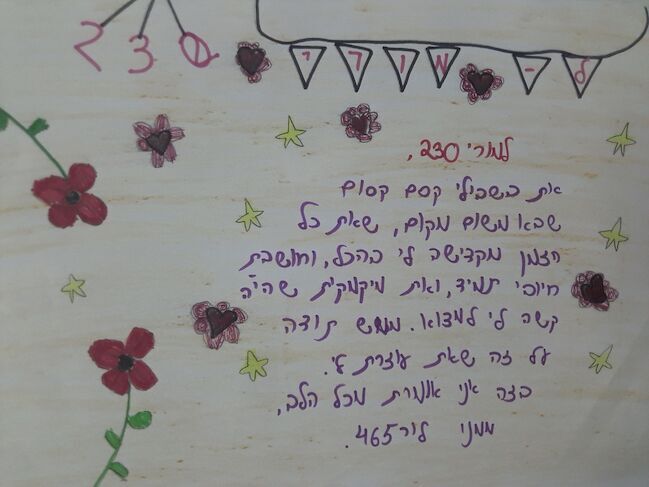 230
ל-מורי
למורי 230,
את בשבילי קסם קסום
שבא משום מקום, שאת כל
הזמן מקדישה לי בהכל, וחושבת
חיובי תמיד, ואת מיקמקית שהיה
קשה לי למצוא. ממש תודה
על זה שאת עוזרת לי.
בזה אני אומרת מכל הלב,
ממני ליר465.